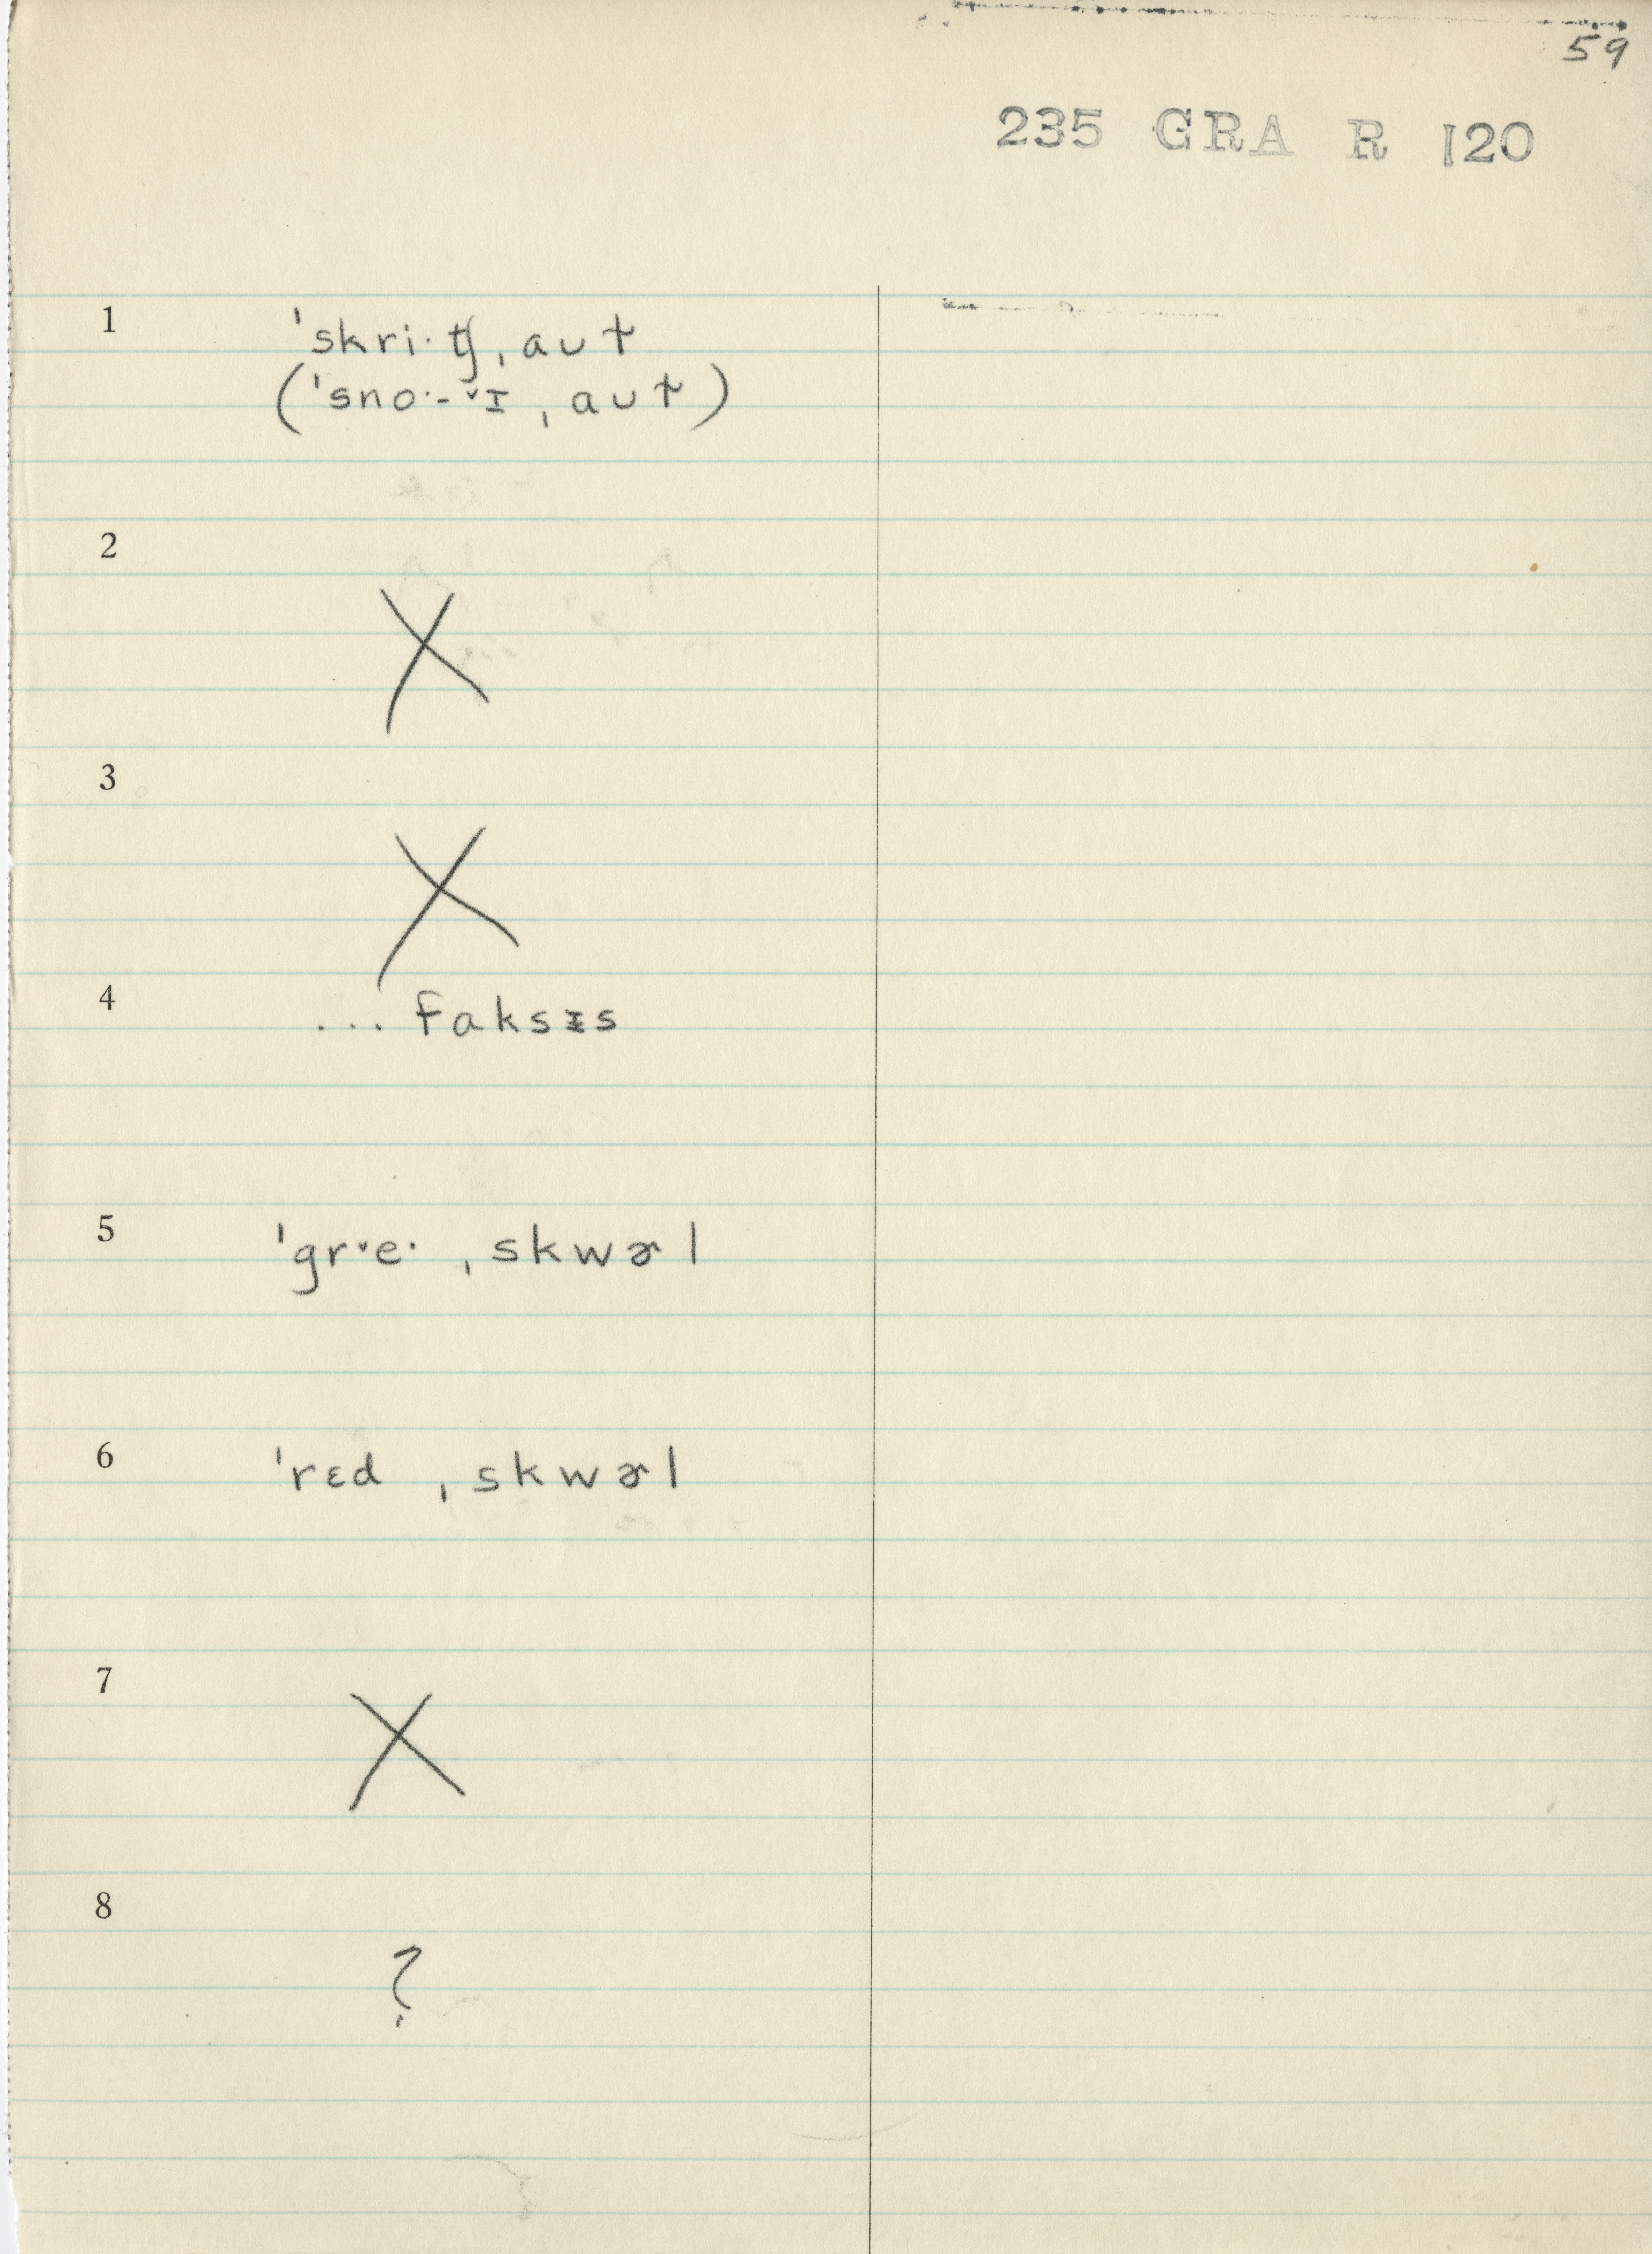 59
235 GRA R 120
1 ˈskri·ʧˌaʊt
(ˈsno·-ˇɪˌaʊt)
2 X
3 X
4 ... faksɪs
5 ˈgrˇe· ˌskwɚl
6 ˈrɛd ˌskwɚl
7 X
8 ?